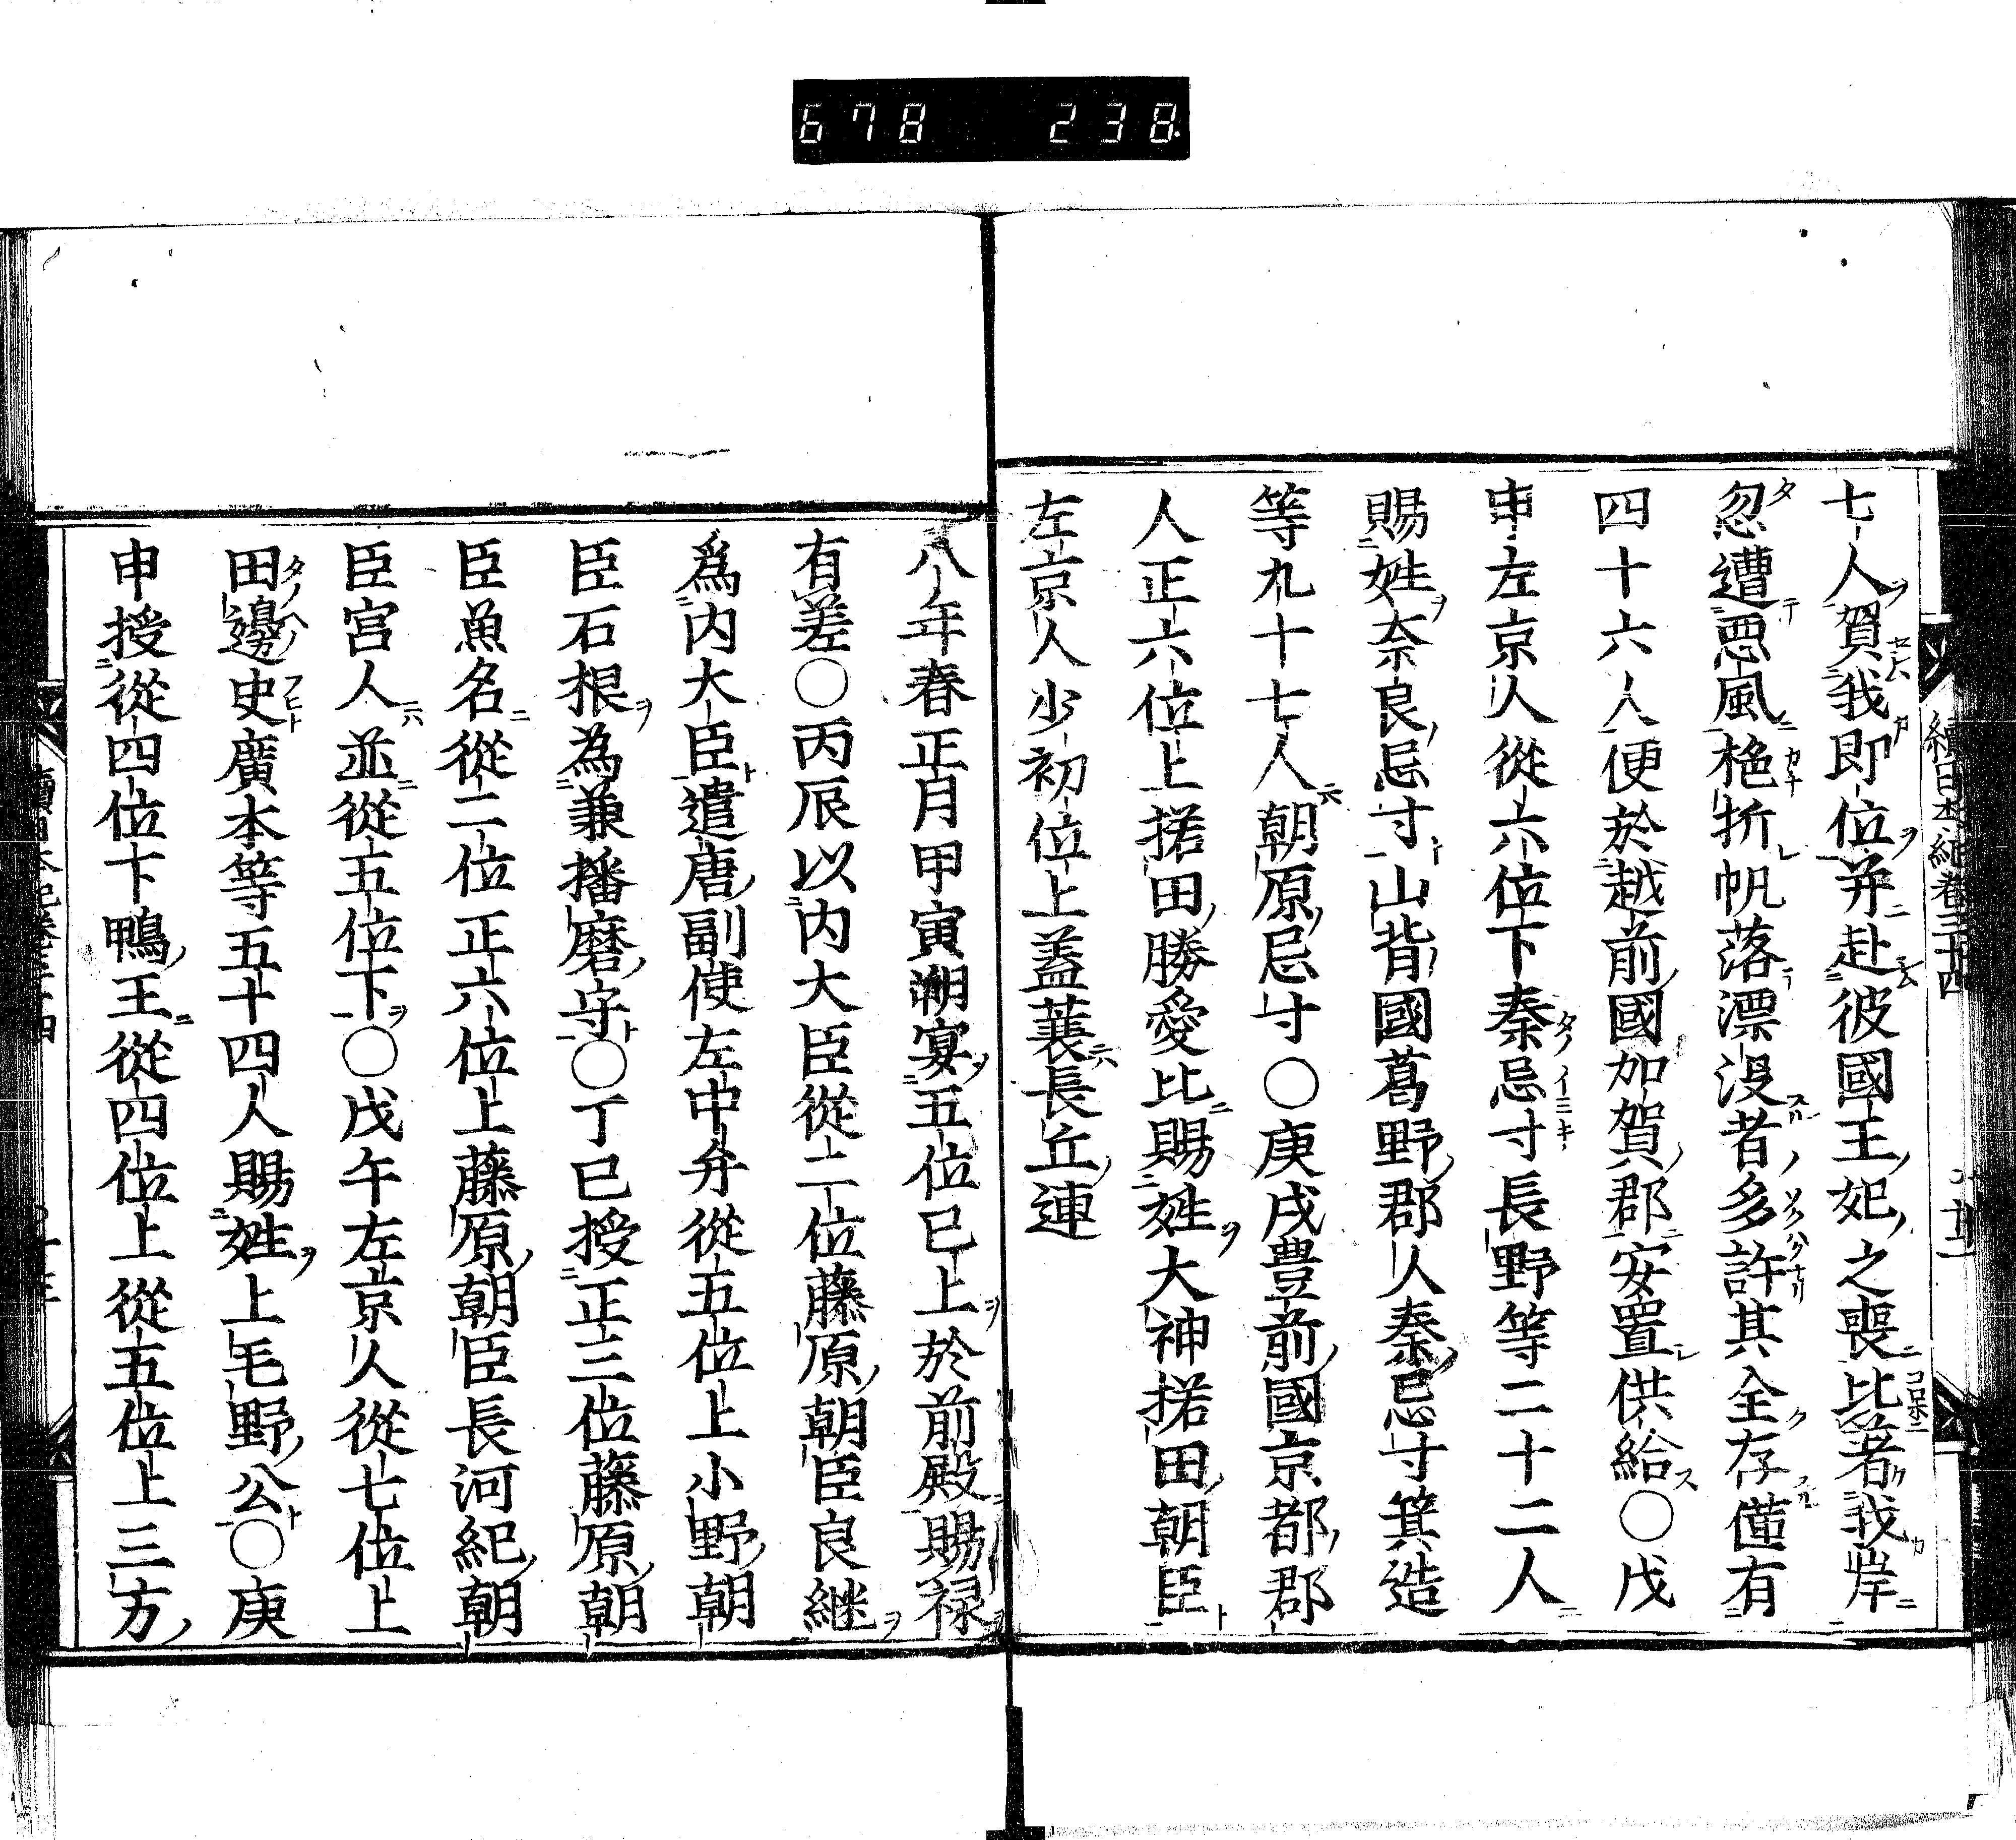 678 238
續日本紀卷三十四
七人賀我即位并赴彼國王妃之喪比著我岸
忽遭惡風柂折帆落漂没者多許其全存僅有
四十六人便於越前國加賀郡安置供給○戊
申左京人從六位下秦忌寸長野等二十二人
賜姓奈良忌寸山背國葛野郡人秦忌寸箕造
等九十七人朝原忌寸○庚戌豊前國京都郡
人正六位上楉田勝愛比賜姓大神楉田朝臣
左京人少初位上蓋蓑長丘連
八年春正月甲寅朔宴五位已上於前殿賜禄
有差○丙辰以内大臣從二位藤原朝臣良継
爲内大臣遣唐副使左中弁從五位上小野朝
臣石根為兼播磨守○丁巳授正三位藤原朝
臣魚名從二位正六位上藤原朝臣長河紀朝
臣宮人並從五位下○戊午左京人從七位上
田邊史廣本等五十四人賜姓上毛野公○庚
申授從四位下鴨王從四位上從五位上三方